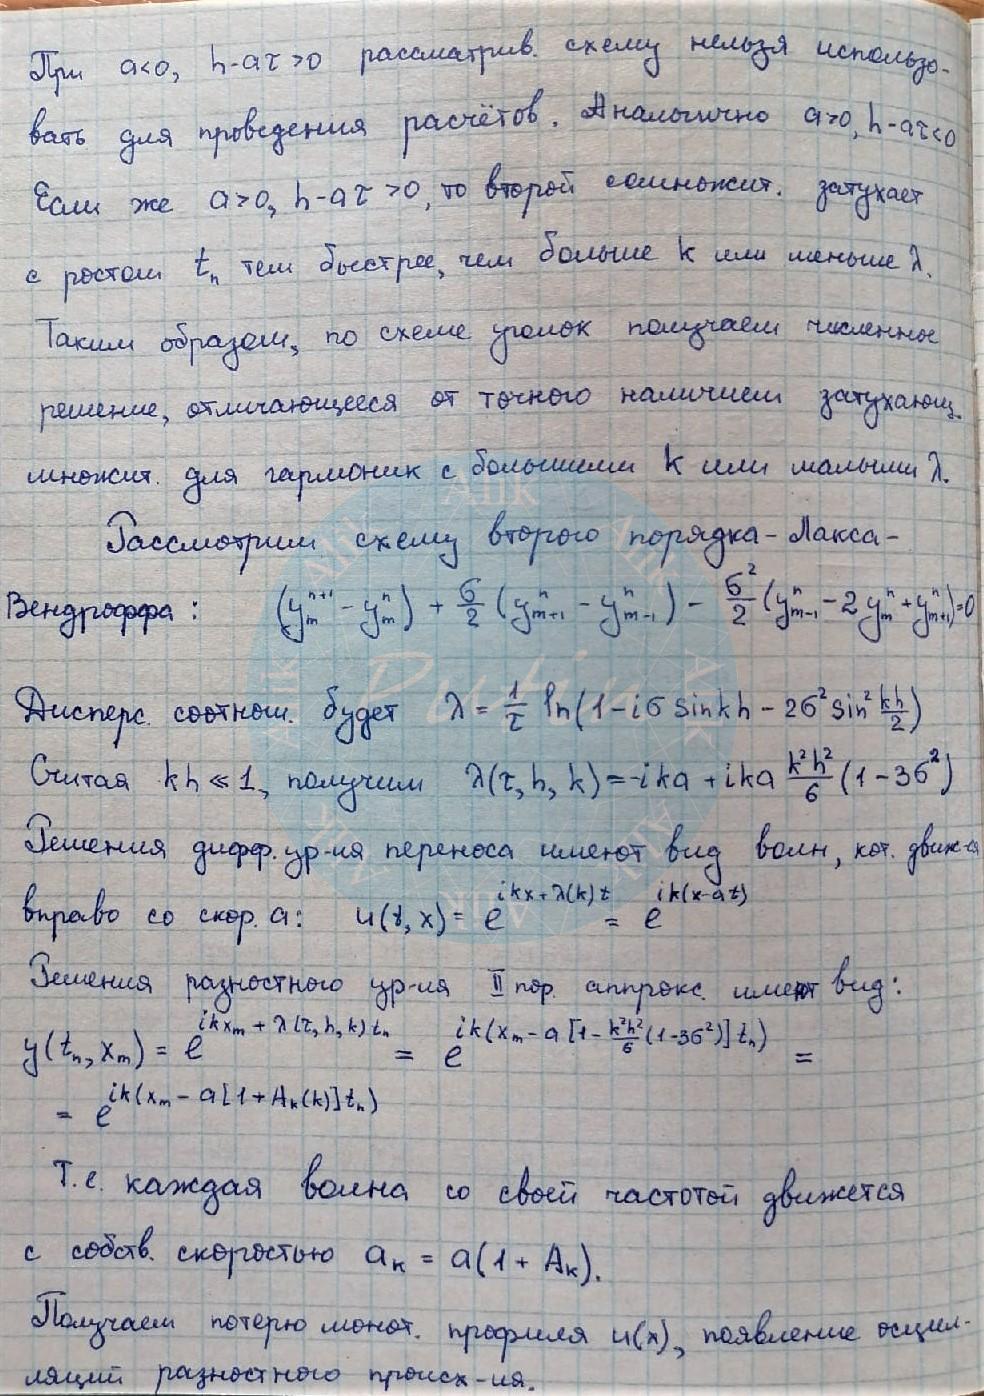 При a<0, h-aτ>0 рассматрив. схему нельзя использо-
вать для проведения расчётов. Аналогично a>0, h-aτ<0
Если же a>0, h-aτ>0, то второй сомножит. затухает
с ростом tₙ тем быстрее, чем больше k или меньше λ.
Таким образом, по схеме уголок получаем численное
решение, отличающееся от точного наличием затухающ.
множит. для гармоник с большими k или малыми λ.
Рассмотрим схему второго порядка - Лакса-
Вендроффа: (y_m^{n+1} - y_m^n) + σ/2 (y_{m+1}^n - y_{m-1}^n) - σ²/2 (y_{m-1}^n - 2y_m^n + y_{m+1}^n) = 0
Дисперс. соотнош. будет λ = 1/τ ln(1 - iσ sin kh - 2σ² sin² kh/2)
Считая kh ≪ 1, получим λ(τ, h, k) = -ika + ika k²h²/6 (1-3σ²)
Решения дифф. ур-ия переноса имеют вид волн, кот. движ-ся
вправо со скор. a: u(t, x) = e^{ikx + λ(k)t} = e^{ik(x-at)}
Решения разностного ур-ия II пор. аппрокс. имеют вид:
y(tₙ, x_m) = e^{ikx_m + λ(τ, h, k)tₙ} = e^{ik(x_m - a[1 - k²h²/6 (1-3σ²)]tₙ)} =
= e^{ik(x_m - a[1 + A_k(k)]tₙ)}
Т.е. каждая волна со своей частотой движется
с собств. скоростью a_k = a(1 + A_k).
Получаем потерю монот. профиля u(x), появление осцил-
ляций разностного происх-ия.